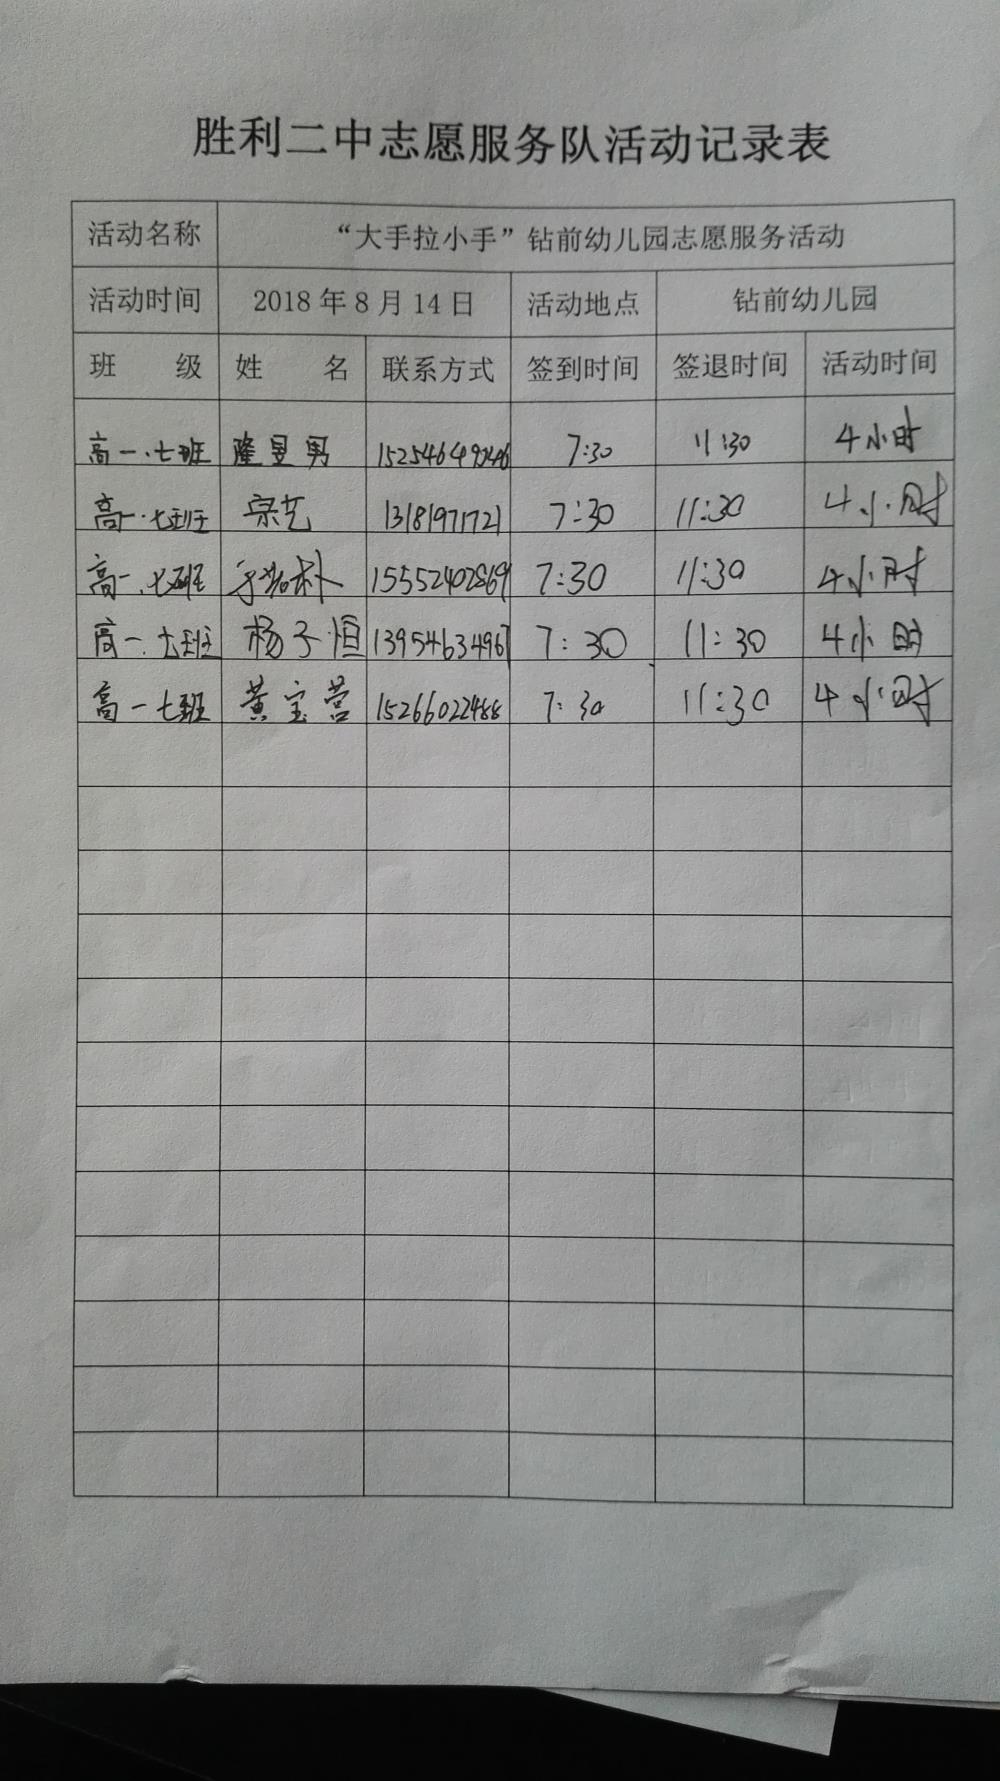 胜利二中志愿服务队活动记录表
活动名称 “大手拉小手”钻前幼儿园志愿服务活动
活动时间 2018年8月14日 活动地点 钻前幼儿园
班 级 姓 名 联系方式 签到时间 签退时间 活动时间
高一.七班 隆昱男 7:30 11:30 4小时
高一.七班 宗艺 13181971721 7:30 11:30 4小时
高一.七班 15552402869 7:30 11:30 4小时
高一.七班 杨子恒 13954634967 7:30 11:30 4小时
高一七班 黄宝营 15266022488 7:30 11:30 4小时